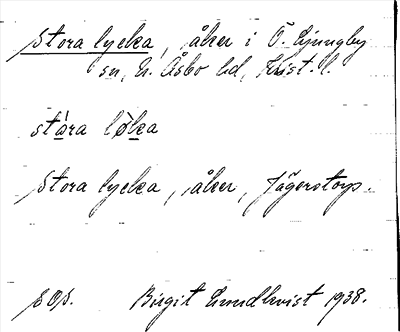 Stora lycka, åker i Ö. Ljungby
sn, N. Åsbo hd, Krist. l.
stára lø̀ka
Stora lycka, åker, Jägerstorp.
Birgit Lundkvist 1938.